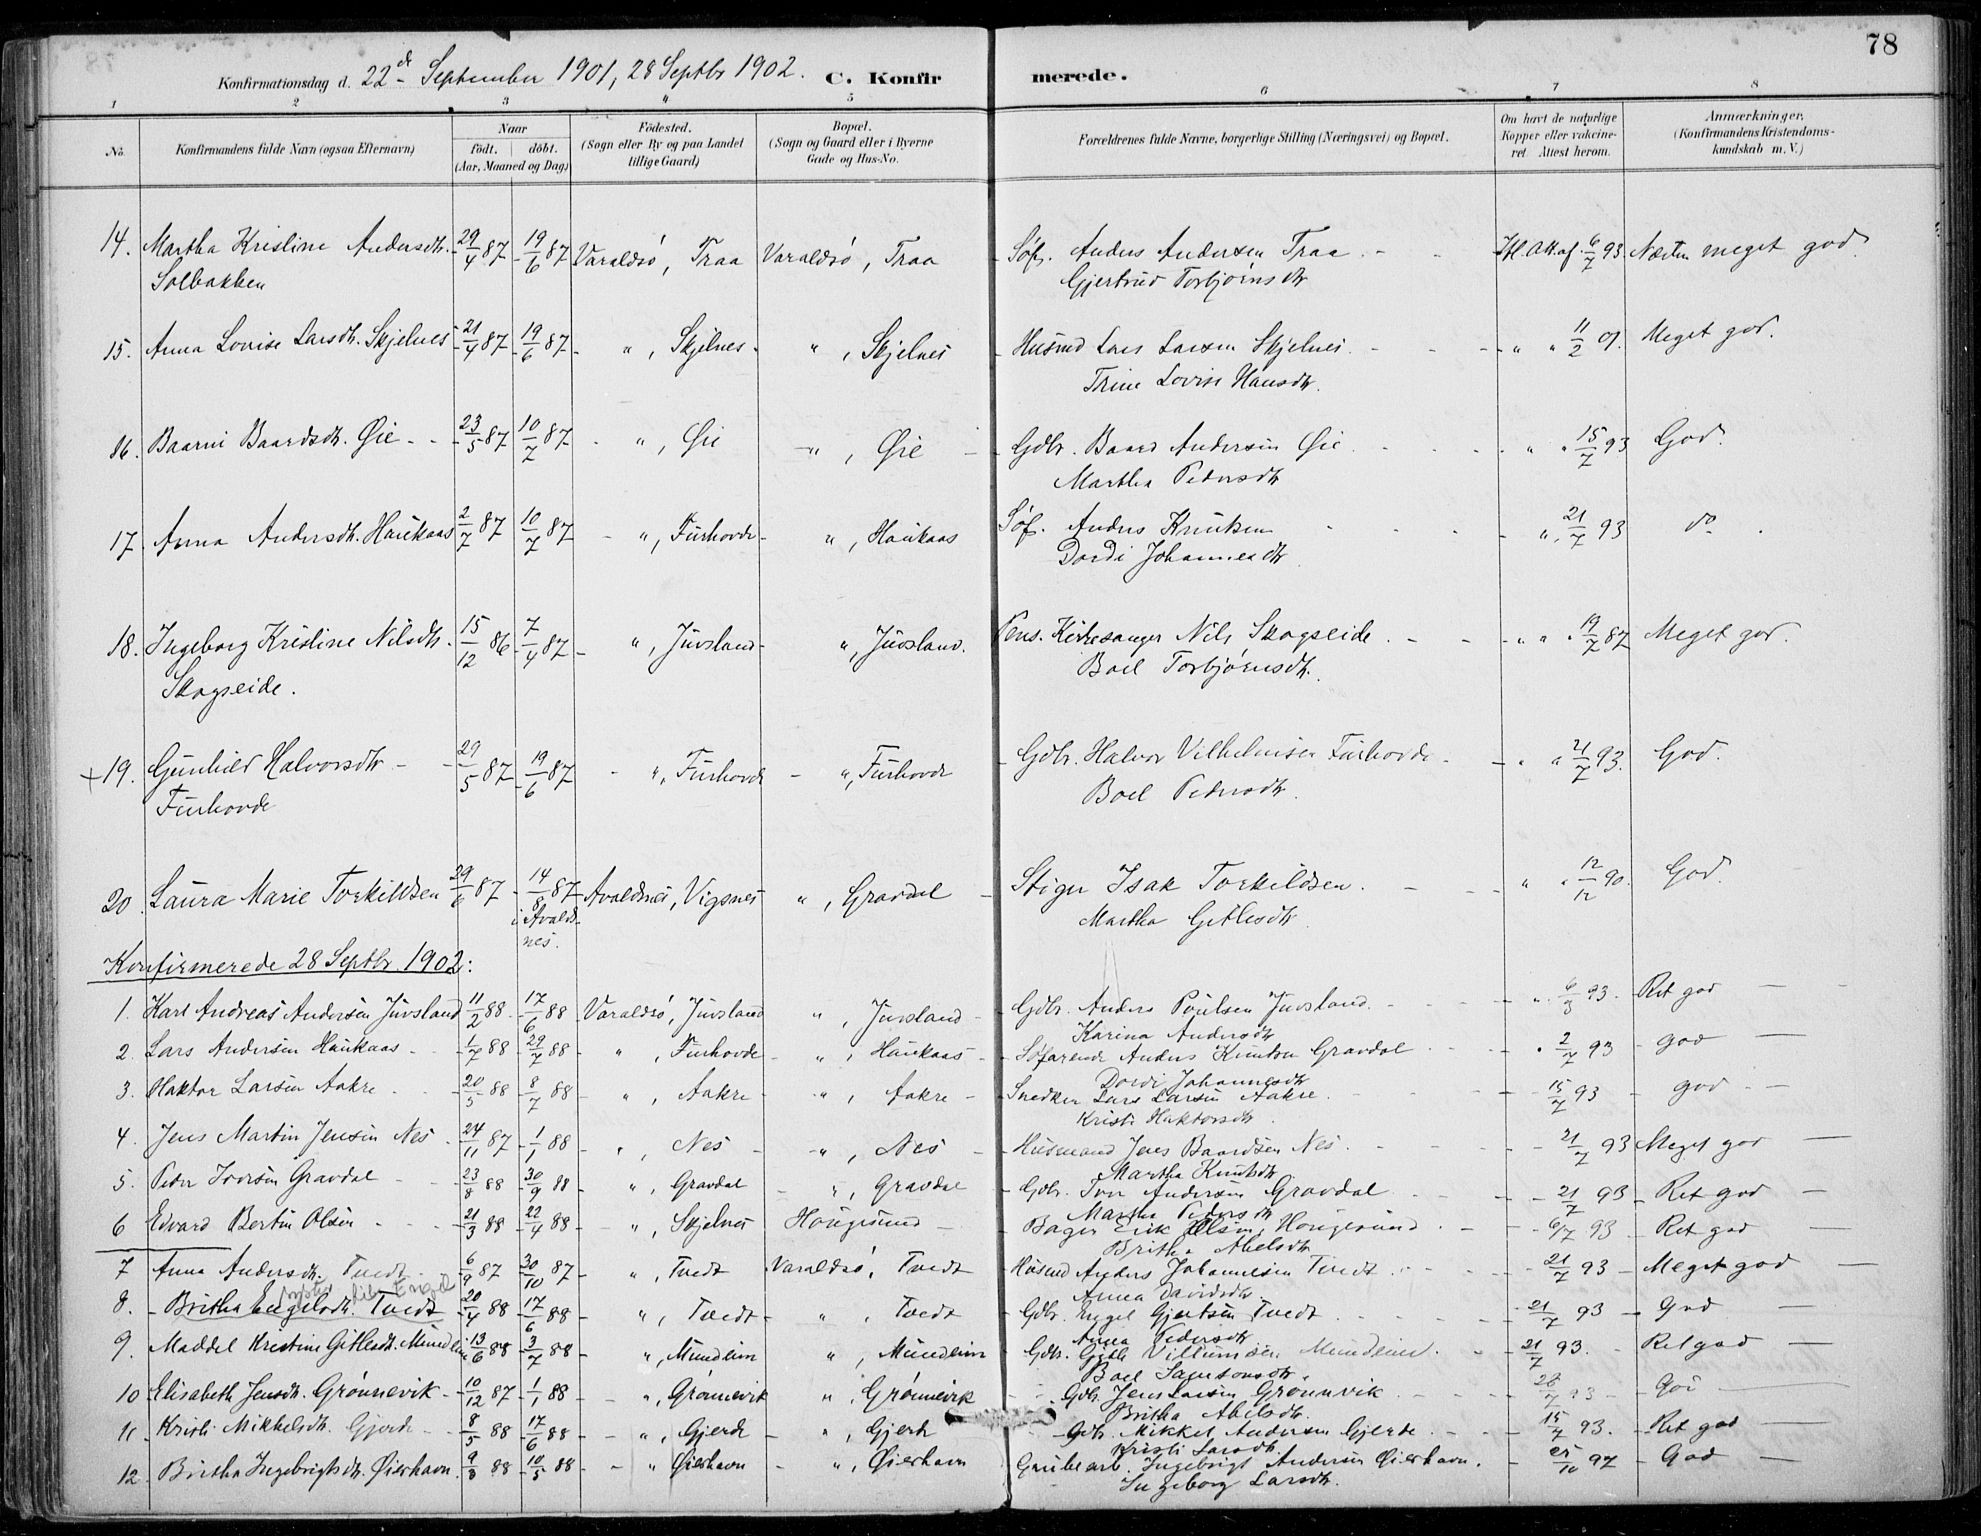 78
Konfirmationsdag d. 22de September 1901, 28 Septbr 1902. C. Konfirmerede.
1 2 3 4 5 6 7 8
No. Konfirmandens fulde Navn (ogsaa Efternavn) Naar født. døbt. (Aar, Maaned og Dag) Fødested. (Sogn eller By og paa Landet tillige Gaard) Bopæl. (Sogn og Gaard eller i Byerne Gade og Hus-No. Forældrenes fulde Navne, borgerlige Stilling (Næringsvei) og Bopæl. Om havt de naturlige Kopper eller vakcineret. Attest herom. Anmærkninger. (Konfirmandens Kristendomskundskab m. V.)
14. Martha Kristine Andersdtr. 29/4 87 19/6 87 Varaldsö, Traa Varaldsö, Traa Søf. Anders Andersen Traa 6/7 93 Næsten meget god.
Solbakken Gjertrud Torbjørnsdtr
15. Anna Lovise Larsdtr. Skjelnes 21/4 87 19/6 87 " , Skjelnes " , Skjelnes Husmd Lars Larsen Skjelnes " " 11/2 01. Meget god.
Trine Lovise Hansdtr.
16. Baarni Baardsdtr. Øie 23/5 87 10/7 87 " , Øie " , Øie Gdbr. Baard Andersen Øie " " 15/7 93 God.
Martha Pedersdtr
17. Anna Andersdtr. Haukaas 2/7 87 10/7 87 " , Furhovde " , Haukaas Søf. Anders Knutsen " 21/7 93 do
Dordi Johannesdtr
18. Ingeborg Kristine Nilsdtr. 15/12 86 7/4 87 " , Juvsland " , Juvsland. Pens. Kirkesanger Nils Skogseide " " 19/7 87 Meget god.
Skogseide. Boel Torbjørnsdtr.
+19. Gunhild Halvorsdtr 29/5 87 19/6 87 " , Furhovde " , Furhovde Gdbr. Halvor Vilhelmsen Furhovde " " 21/7 93. God.
Furhovde Boel Pedersdtr.
20. Laura Marie Torkildsen 29/6 87 14/8 87 Avaldsnes, Vigsnes " , Gravdal Stiger Isak Torkildsen. " " 12/12 90. God.
i Avaldsnes. Martha Gitlesdtr.
Konfirmerede 28 Septbr 1902:
1. Karl Andreas Andersen Juvsland 11/2 88 17/6 88 Varaldsö, Juvsland " , Juvsland Gdbr. Anders Poulsen Juvsland " 6/3 93. Ret god
Karina Andersdtr
2. Lars Andersen Haukaas 1/7 88 29/7 88 " , Furhovde " , Haukaas Søfarende Anders Knutsen Gravdal " 2/7 93 god
Dordi Johannesdtr
3. Haktor Larsen Aakre 20/5 88 8/7 88 " , Aakre " , Aakre Snedker Lars Larsen Aakre. 15/7 93 god
Kristi Haktorsdtr
4. Jens Martin Jensen Nes 24/11 87 1/1 88 " , Nes " , Nes Husmand Jens Baardsen Nes 21/7 93 Meget god
Martha Knutsdtr
5. Peder Iversen Gravdal 23/8 88 30/9 88 " , Gravdal " , Gravdal Gdbr. Iver Andersen Gravdal 21/7 93 Ret god
Martha Pedersdtr
6 Edvard Bertin Olsen 21/3 88 22/4 88 " , Skjelnes Hougesund Bager Erik Olsen, Hougesund 6/7 93 Ret god
Britha Abelsdtr
7 Anna Andersdtr. Tvedt 6/9 87 30/10 87 " , Tvedt Varaldsö, Tvedt Husmd Anders Johannesen Tvedt 21/7 93 Meget god
Anna Davidsdtr.
8. Britha Engelsdtr. Tvedt 20/4 88 17/6 88 " , Tvedt " , Tvedt Gdbr. Engel Gjertsen Tvedt 21/7 93 God
Anna Pedersdtr
9. Maddel Kristine Gitlesdtr. Mundheim 13/6 88 3/7 88 " , Mundheim " , Mundheim Gdbr. Gitle Villumsen Mundheim 21/7 93. Ret god
Boel Samsonsdtr.
10 Elisabeth Jensdtr. Grønnevik 10/12 87 1/1 88 " , Grønnevik " , Grønnevik Gdbr. Jens Larsen Grønnvik 93 God
Britha Abelsdtr.
11 Kristi Mikkelsdtr. Gjerde 8/5 88 17/6 88 " , Gjerde " , Gjerde Gdbr. Mikkel Andersen Gjerde 15/7 93. Ret god
Kristi Larsdtr.
12. Britha Ingebrigtsdtr. Øierhavn 9/3 88 10/5 88 " Øierhavn " , Øierhavn Grubearb. Ingebrigt Andersen Øierhavn. 25/10 97 God
Ingeborg Larsdtr.